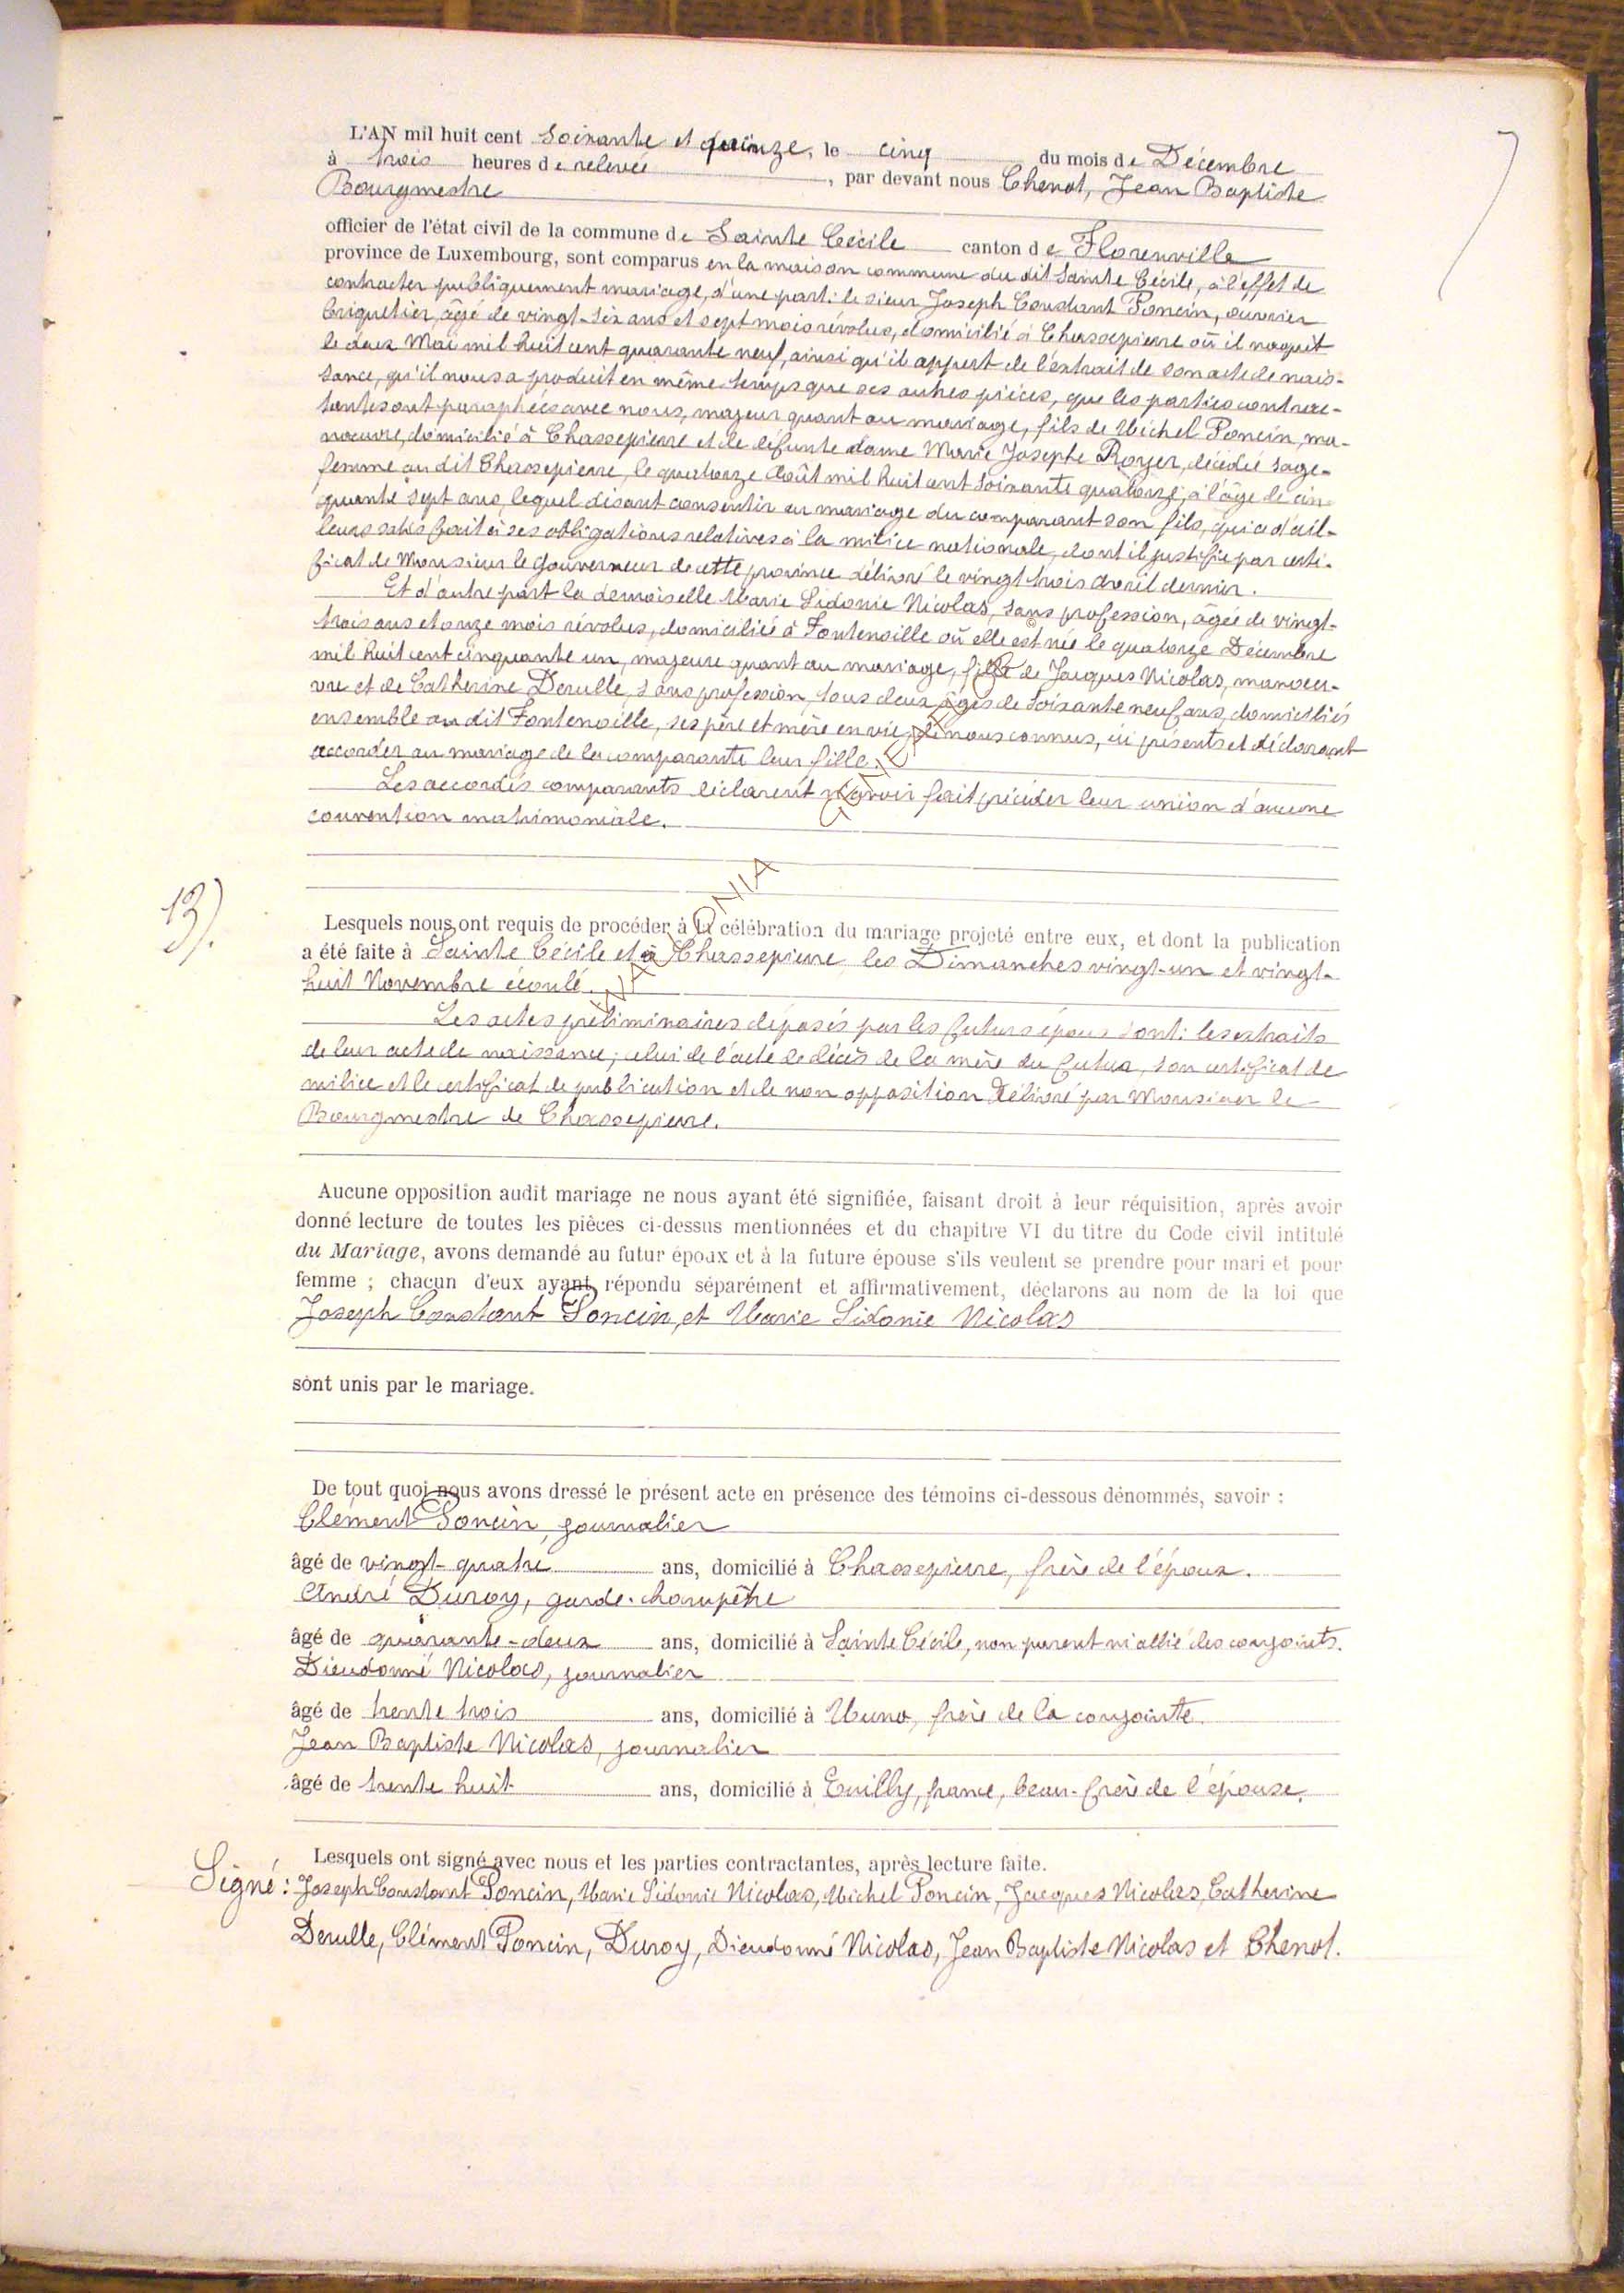 L'AN mil huit cent soixante et quinze, le cinq du mois de Décembre
à trois heures de relevée, par devant nous Chenot, Jean Baptiste
Bourgmestre
officier de l'état civil de la commune de Sainte Cécile canton de Florenville
province de Luxembourg, sont comparus en la maison commune du dit Sainte Cécile, à l'effet de
contracter publiquement mariage, d'une part: le sieur Joseph Constant Poncin, ouvrier
briquetier, âgé de vingt-six ans et sept mois révolus, domicilié à Chassepierre où il naquit
le deux Mai mil huit cent quarante neuf, ainsi qu'il appert de l'extrait de son acte de nais-
sance, qu'il nous a produit en même temps que ses autres pièces, que les parties contrac-
tantes ont paraphées avec nous, majeur quant au mariage, fils de Michel Poncin, ma-
nœuvre, domicilié à Chassepierre et de défunte dame Marie Josephe Royer, décédée sage-
femme au dit Chassepierre, le quatorze Août mil huit cent soixante quatorze, à l'âge de cin-
quante sept ans, lequel disant consentir au mariage du comparant son fils, qui a d'ail-
leurs satisfait à ses obligations relatives à la milice nationale, dont il justifie par certi-
ficat de Monsieur le Gouverneur de cette province délivré le vingt trois Avril dernier.
Et d'autre part la demoiselle Marie Sidonie Nicolas, sans profession, âgée de vingt-
trois ans et onze mois révolus, domiciliée à Fontenoille où elle est née le quatorze Décembre
mil huit cent cinquante un, majeure quant au mariage, fille de Jacques Nicolas, manœu-
vre et de Catherine Derulle, sans profession, tous deux âgés de soixante neuf ans, domiciliés
ensemble au dit Fontenoille, ses père et mère en vie, de nous connus, ici présents et déclarant
accorder au mariage de la comparante leur fille.
Les accordés comparants déclarent n'avoir fait précéder leur union d'aucune
convention matrimoniale.
13).
Lesquels nous ont requis de procéder à la célébration du mariage projeté entre eux, et dont la publication
a été faite à Sainte Cécile et à Chassepierre les Dimanches vingt-un et vingt-
huit Novembre écoulé.
Les actes préliminaires déposés par les futurs époux sont: les extraits
de leur acte de naissance; celui de l'acte de décès de la mère du futur, son certificat de
milice et le certificat de publication et de non opposition délivré par Monsieur le
Bourgmestre de Chassepierre.
Aucune opposition audit mariage ne nous ayant été signifiée, faisant droit à leur réquisition, après avoir
donné lecture de toutes les pièces ci-dessus mentionnées et du chapitre VI du titre du Code civil intitulé
du Mariage, avons demandé au futur époux et à la future épouse s'ils veulent se prendre pour mari et pour
femme ; chacun d'eux ayant répondu séparément et affirmativement, déclarons au nom de la loi que
Joseph Constant Poncin, et Marie Sidonie Nicolas
sont unis par le mariage.
De tout quoi nous avons dressé le présent acte en présence des témoins ci-dessous dénommés, savoir :
Clément Poncin, journalier
âgé de vingt-quatre ans, domicilié à Chassepierre, frère de l'époux.
André Duroy, garde-champêtre
âgé de quarante-deux ans, domicilié à Sainte Cécile, non parent ni allié des conjoints.
Dieudonné Nicolas, journalier
âgé de trente trois ans, domicilié à Muno, frère de la conjointe.
Jean Baptiste Nicolas, journalier
âgé de trente huit ans, domicilié à Euilly, france, beau-frère de l'épouse.
Lesquels ont signé avec nous et les parties contractantes, après lecture faite.
Signé : Joseph Constant Poncin, Marie Sidonie Nicolas, Michel Poncin, Jacques Nicolas, Catherine
Derulle, Clément Poncin, Duroy, Dieudonné Nicolas, Jean Baptiste Nicolas et Chenot.